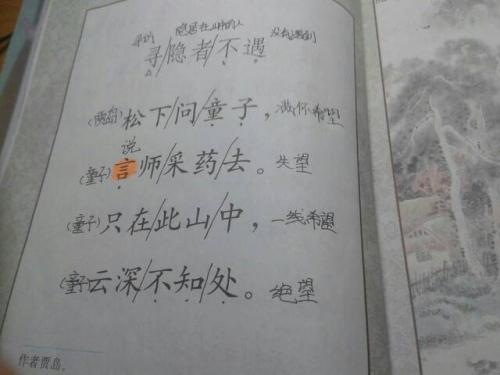 寻的 隐居在山中的人 没有遇到
寻/隐者/不遇
(贾岛)松下/问/童子,满怀希望
说
(童子)言/师/采药/去。失望
(童子)只在/此山/中,一线希望
(童子)云深/不知/处。绝望
作者贾岛。